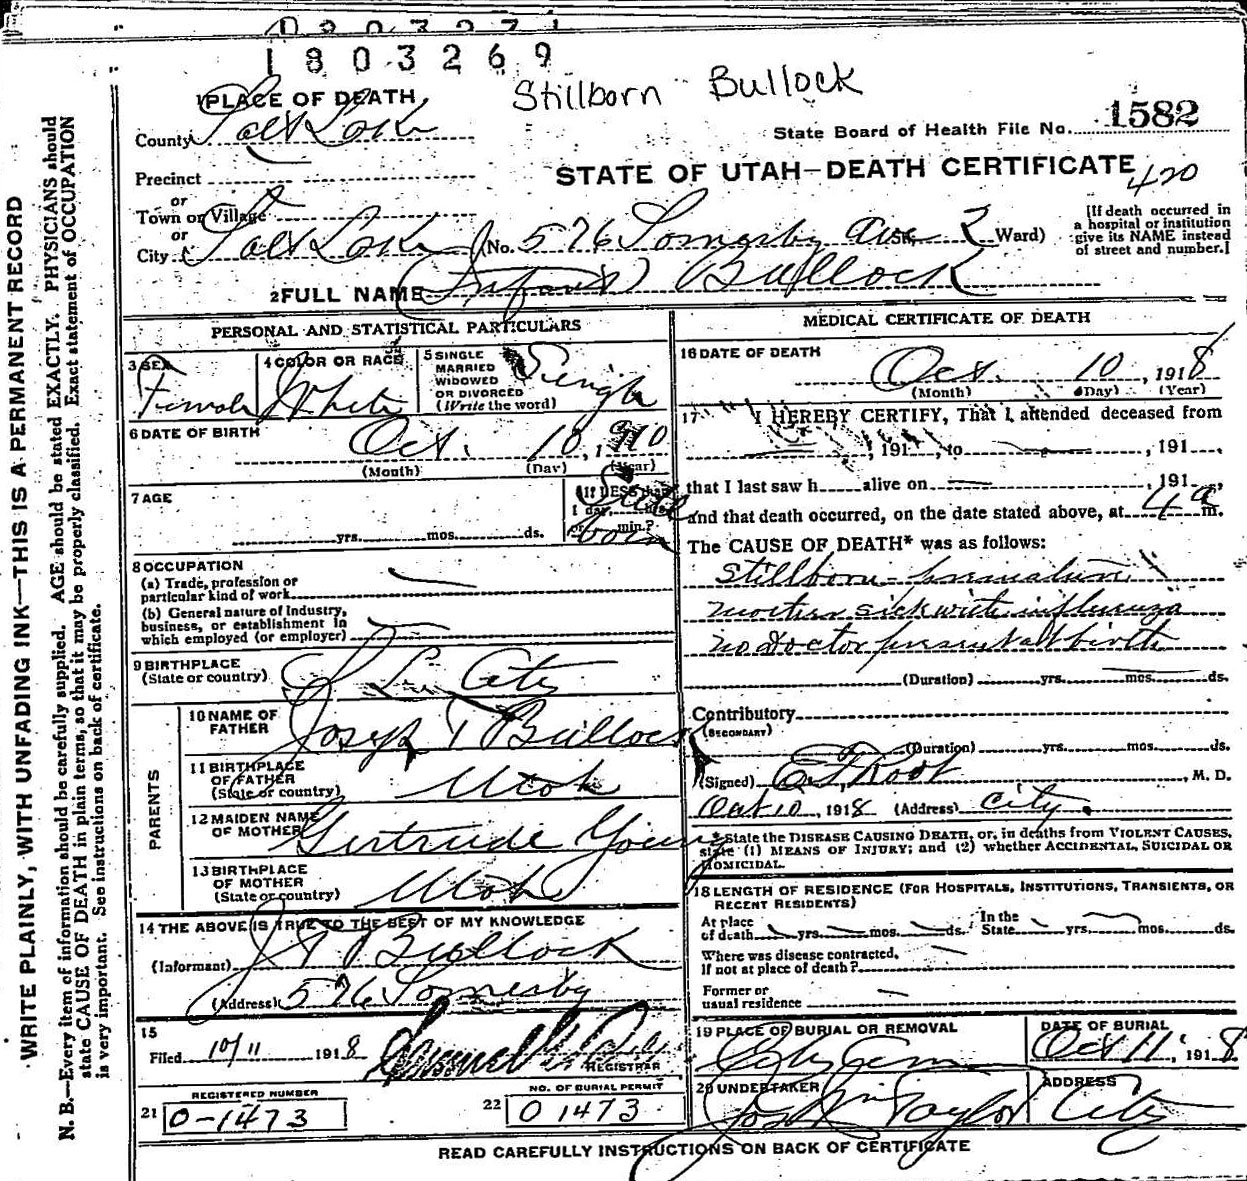 1803269
Stillborn Bullock
1 PLACE OF DEATH
County Salt Lake
State Board of Health File No. 1582
STATE OF UTAH—DEATH CERTIFICATE
420
Precinct
or
Town or Village
or
City Salt Lake (No. 576 Somersby Ave St. 2 Ward)
[If death occurred in
a hospital or institution
give its NAME instead
of street and number.]
2 FULL NAME (Infant) Bullock
PERSONAL AND STATISTICAL PARTICULARS
3 SEX
Female
4 COLOR OR RACE
White
5 SINGLE
MARRIED
WIDOWED
OR DIVORCED
(Write the word)
Single
6 DATE OF BIRTH
Oct. 10, 1910
(Month) (Day) (Year)
7 AGE
yrs. mos. ds.
If LESS than
1 day, hrs.
or min.?
Still born
8 OCCUPATION
(a) Trade, profession or
particular kind of work
(b) General nature of Industry,
business, or establishment in
which employed (or employer)
9 BIRTHPLACE
(State or country)
S L City
PARENTS
10 NAME OF
FATHER
Joseph T Bullock
11 BIRTHPLACE
OF FATHER
(State or country)
Utah
12 MAIDEN NAME
OF MOTHER
Gertrude Young
13 BIRTHPLACE
OF MOTHER
(State or country)
Utah
14 THE ABOVE IS TRUE TO THE BEST OF MY KNOWLEDGE
(Informant) J T Bullock
(Address) 576 Somersby
15
Filed 10/11 1918
REGISTRAR
REGISTERED NUMBER
21 0-1473
NO. OF BURIAL PERMIT
22 0 1473
MEDICAL CERTIFICATE OF DEATH
16 DATE OF DEATH
Oct. 10, 1918
(Month) (Day) (Year)
17 I HEREBY CERTIFY, That I attended deceased from
, 191 , to , 191 ,
that I last saw h alive on , 191 ,
and that death occurred, on the date stated above, at 4 a m.
The CAUSE OF DEATH* was as follows:
Stillborn - premature
mother sick with influenza
no doctor present at birth
(Duration) yrs. mos. ds.
Contributory
(SECONDARY)
(Duration) yrs. mos. ds.
(Signed) Root, M. D.
Oct 10, 1918 (Address) City.
*State the DISEASE CAUSING DEATH, or, in deaths from VIOLENT CAUSES,
state (1) MEANS OF INJURY; and (2) whether ACCIDENTAL, SUICIDAL OR
HOMICIDAL.
18 LENGTH OF RESIDENCE (FOR HOSPITALS, INSTITUTIONS, TRANSIENTS, OR
RECENT RESIDENTS)
At place
of death yrs. mos. ds. In the
State yrs. mos. ds.
Where was disease contracted,
if not at place of death?
Former or
usual residence
19 PLACE OF BURIAL OR REMOVAL
City Cem
DATE OF BURIAL
Oct 11, 1918
20 UNDERTAKER
Jos Wm Taylor
ADDRESS
City
READ CAREFULLY INSTRUCTIONS ON BACK OF CERTIFICATE
WRITE PLAINLY, WITH UNFADING INK—THIS IS A PERMANENT RECORD
N. B.—Every item of information should be carefully supplied. AGE should be stated EXACTLY. PHYSICIANS should
state CAUSE OF DEATH in plain terms, so that it may be properly classified. Exact statement of OCCUPATION
is very important. See instructions on back of certificate.